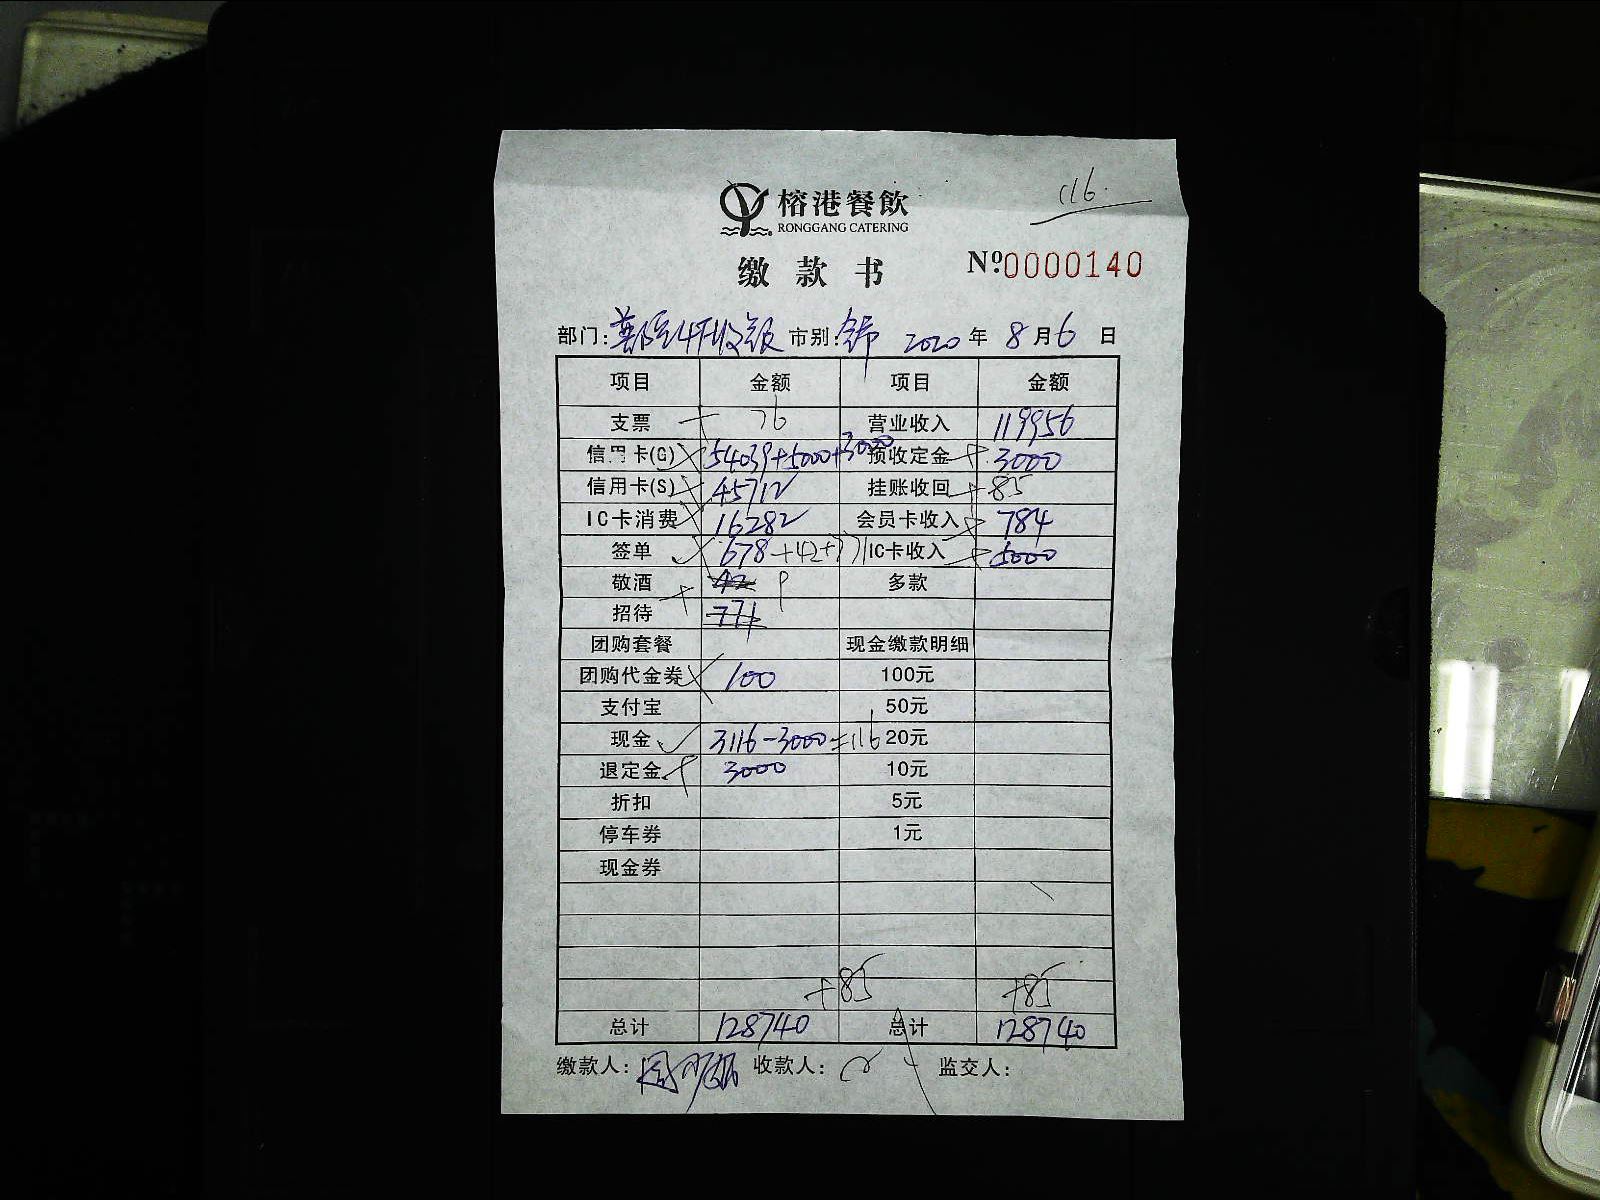 116.
榕港餐飲
RONGGANG CATERING
缴款书 №0000140
部门: 市别: 2020年8月6日
项目 金额 项目 金额
支票 76 营业收入 119956
信用卡(G) 54039+5000+3000 预收定金 3000
信用卡(S) 45712 挂账收回 +85
IC卡消费 16282 会员卡收入 784
签单 678+42+771 IC卡收入 5000
敬酒 42 多款
招待 771
团购套餐 现金缴款明细
团购代金券 100 100元
支付宝 50元
现金 3116-3000=116 20元
退定金 3000 10元
折扣 5元
停车券 1元
现金券
+85 +85
总计 128740 总计 128740
缴款人: 收款人: 监交人: